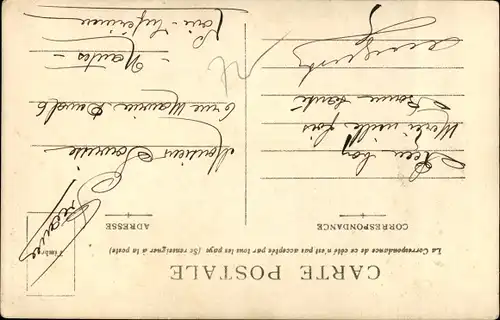 CARTE POSTALE
La Correspondance de ce côté n'est pas acceptée par tous les pays (Se renseigner à la poste)
CORRESPONDANCE
ADRESSE
Timbre
bon
Merci mille fois
Bonne santé
Monsieur
6 rue
- Nantes -
Loire - Inférieure